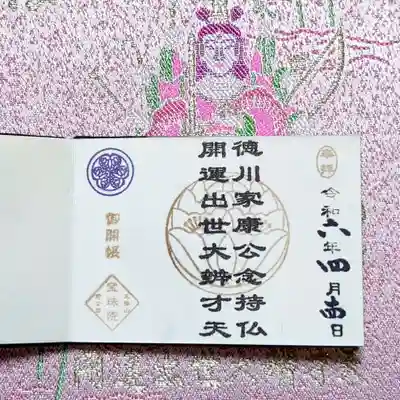 奉拝
令和六年四月吉日
徳川家康公念持仏
開運出世大辨才天
御開帳
宝珠院